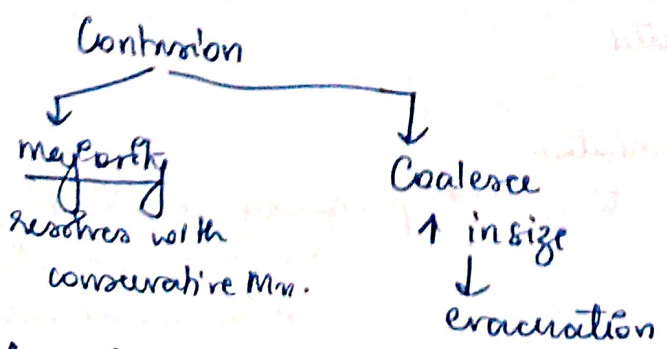 Contusion
majority
resolves with
conservative Mn.
Coalesce
↑ in size
evacuation